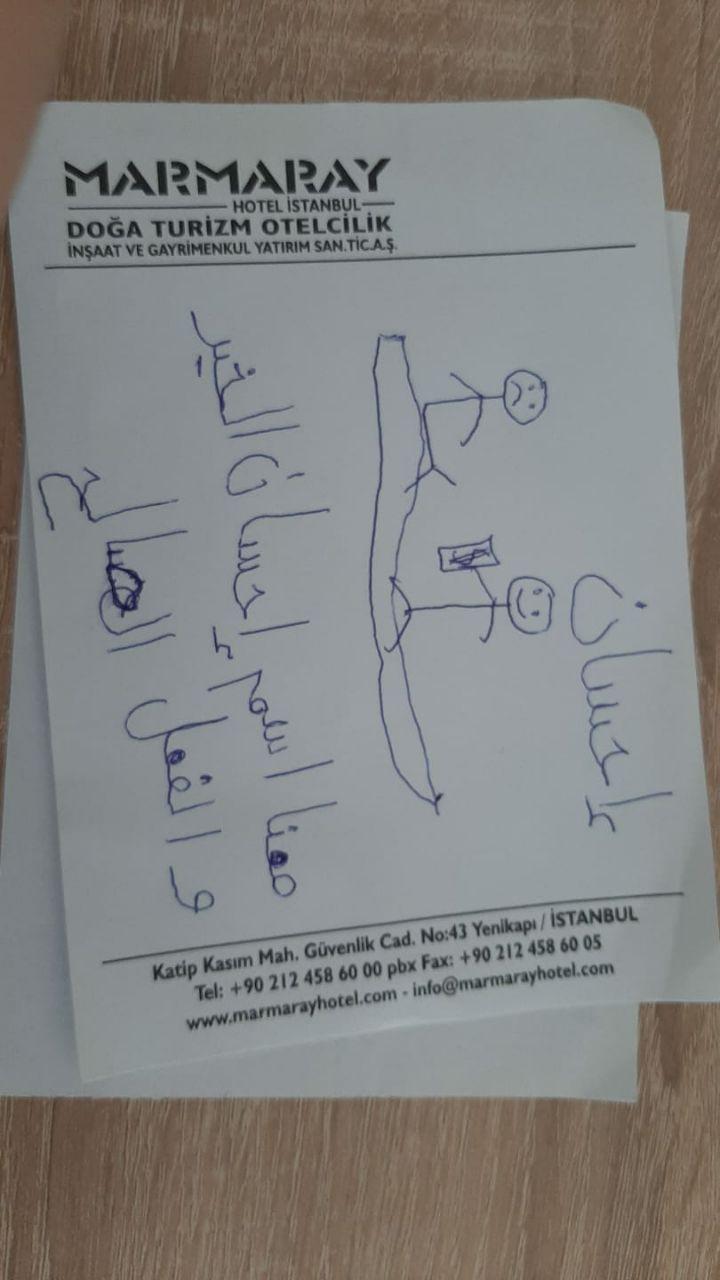 MARMARAY
HOTEL İSTANBUL
DOĞA TURİZM OTELCİLİK
İNŞAAT VE GAYRİMENKUL YATIRIM SAN.TİC.A.Ş.
إحسان
$
معنا اسم إحسان الخير
و الفعل الصالح
Katip Kasım Mah. Güvenlik Cad. No:43 Yenikapı / İSTANBUL
Tel: +90 212 458 60 00 pbx Fax: +90 212 458 60 05
www.marmarayhotel.com - info@marmarayhotel.com